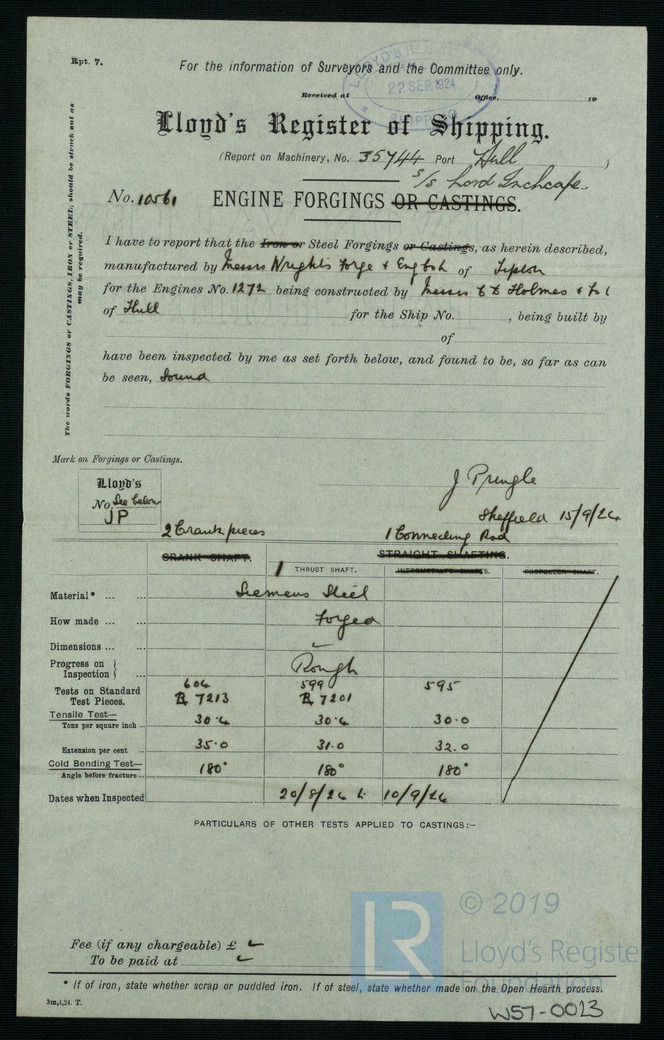 Rpt. 7.
For the information of Surveyors and the Committee only.
22 SEP. 1924
Received at Office, 19
Lloyd's Register of Shipping.
(Report on Machinery, No. 35744 Port Hull)
s/s Lord Inchcape.
No. 10561 ENGINE FORGINGS OR CASTINGS.
The words FORGINGS or CASTINGS, IRON or STEEL, should be struck out as may be required.
I have to report that the Iron or Steel Forgings or Castings, as herein described,
manufactured by Messrs Wright's Forge & Eng of Tipton
for the Engines No. 1272 being constructed by Messrs C D Holmes & Co L
of Hull for the Ship No. , being built by
of
have been inspected by me as set forth below, and found to be, so far as can
be seen, Sound
Mark on Forgings or Castings.
J Pringle
Lloyd's
No. See below
JP
Sheffield 15/9/24
2 Crank pieces 1 Connecting Rod
CRANK SHAFT. 1 THRUST SHAFT. STRAIGHT SHAFTING. INTERMEDIATE SHAFTS. PROPELLER SHAFT.
Material* ... ... Siemens Steel
How made ... ... Forged
Dimensions ... ...
Progress on Inspection } ... Rough
604 599 595
Tests on Standard Test Pieces. R 7213 R 7201
Tensile Test—
Tons per square inch ... 30.4 30.4 30.0
Extension per cent ... 35.0 31.0 32.0
Cold Bending Test—
Angle before fracture ... 180° 180° 180°
Dates when Inspected 20/8/24 & 10/9/24
PARTICULARS OF OTHER TESTS APPLIED TO CASTINGS:—
© 2019
LR
Lloyd's Register
Foundation
Fee (if any chargeable) £
To be paid at
* If of iron, state whether scrap or puddled iron. If of steel, state whether made on the Open Hearth process.
3m,4,24. T.
W57-0023